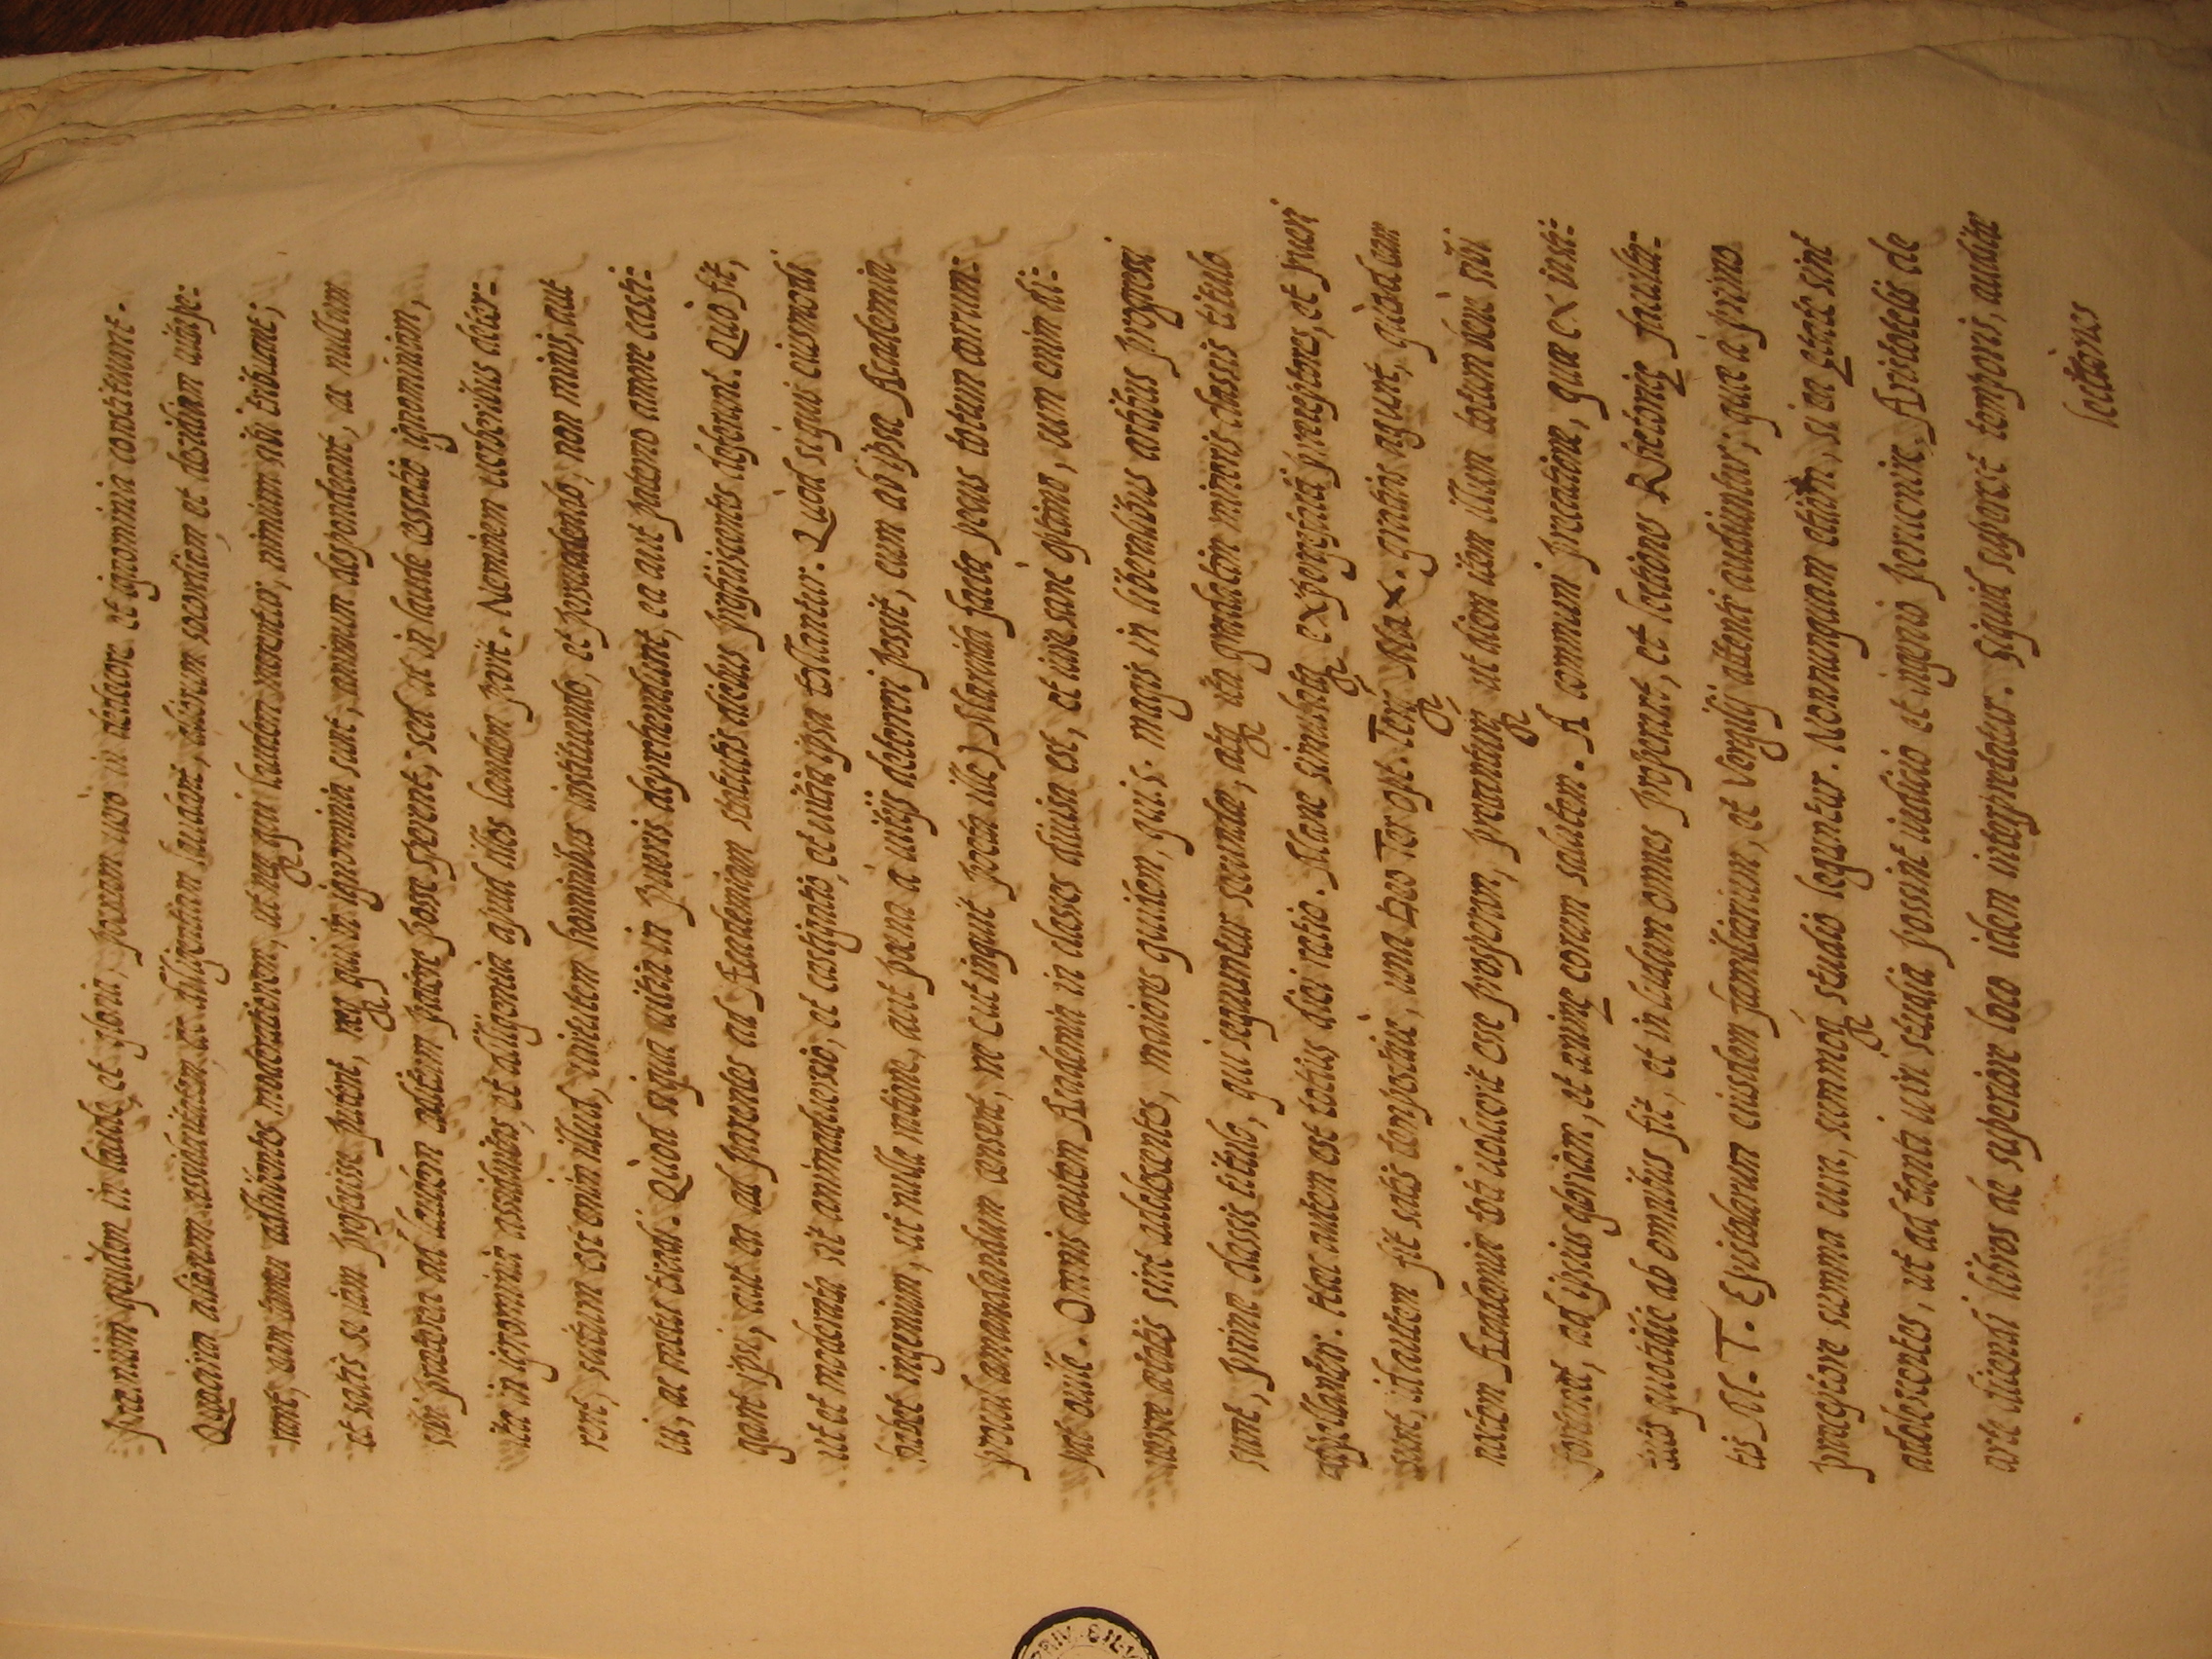 praemium quidem in laude, et gloria, poenam uero in dedecore, et ignominia constituunt.
Quapropter aliorum assiduitatem, ac diligentiam laudant, aliorum socordiam, et desidiam uitupe-
rant, eam tamen adhibentes moderationem, ut neq; qui laudem merentur, nimium sibi tribuant,
et satis se iam profecisse putent, neq; qui in ignominia sunt, animum despondeant, ac nullum
sibi praeterea ad laudem aditum patere posse sperent, sed ut in laude cessatio ignominiam,
ita in ignominia assiduitas, et diligentia apud illos laudem pariat. Neminem uerberibus deter-
rent, scitum est enim illud, uirtutem hominibus instituendo, et persuadendo, non minis, aut
ui, ac metu tradi. Quod siqua uitia in pueris deprehendunt, ea aut paterno amore casti-
gant ipsi, aut ea ad parentes ad Academiam statutis diebus proficiscentes deferunt. Quo fit,
ut et moderata sit animaduersio, et castigatio, et uitia ipsa tollantur. Quod siquis eiusmodi
habet ingenium, ut nulla ratione, aut poena a uitijs deterreri possit, eum ab ipsa Academia
procul amandandum censent, ne (ut inquit poeta ille) Manida facta pecus totum corrum-
pat ouile. Omnis autem Academia in classes diuisa est, et iure sane optimo, cum enim di-
uersae aetatis sint adolescentes, maiores quidem, quis. magis in liberalibus artibus progressi
sunt, primae classis titulo, qui sequuntur secundae, atq; ita gradatim minoris classis titulo
appellantur. Haec autem est totius diei ratio. Mane simulatq; experrecti praeceptores, et pueri
sunt, id autem fit satis tempestiue, una Deo Ter opt. Terq; Max. gratias agunt, quod eam
noctem Academiae toti uoluerit esse prosperam, precanturq; ut diem item illum totum uelit sibi
, ad ipsius gloriam, et animae eorum salutem. A communi precatione, quae ex insti-
tutis quotidie ab omnibus fit, et in ludum omnes properant, et lectiones Rhetoricae faculta-
tis M. T. Epistolarum eiusdem familiarium, et Vergilij attente audiuntur; quae a primo
praeceptore summa cura, summoq; studio leguntur. Nonnunquam etiam, si ea aetate sint
adolescentes, ut ad tanti uiri studia possint iudicio et ingenio peruenire, Aristotelis de
arte dicendi libros de superiore loco idem interpretatur. Siquid superest temporis, audita
lectiones